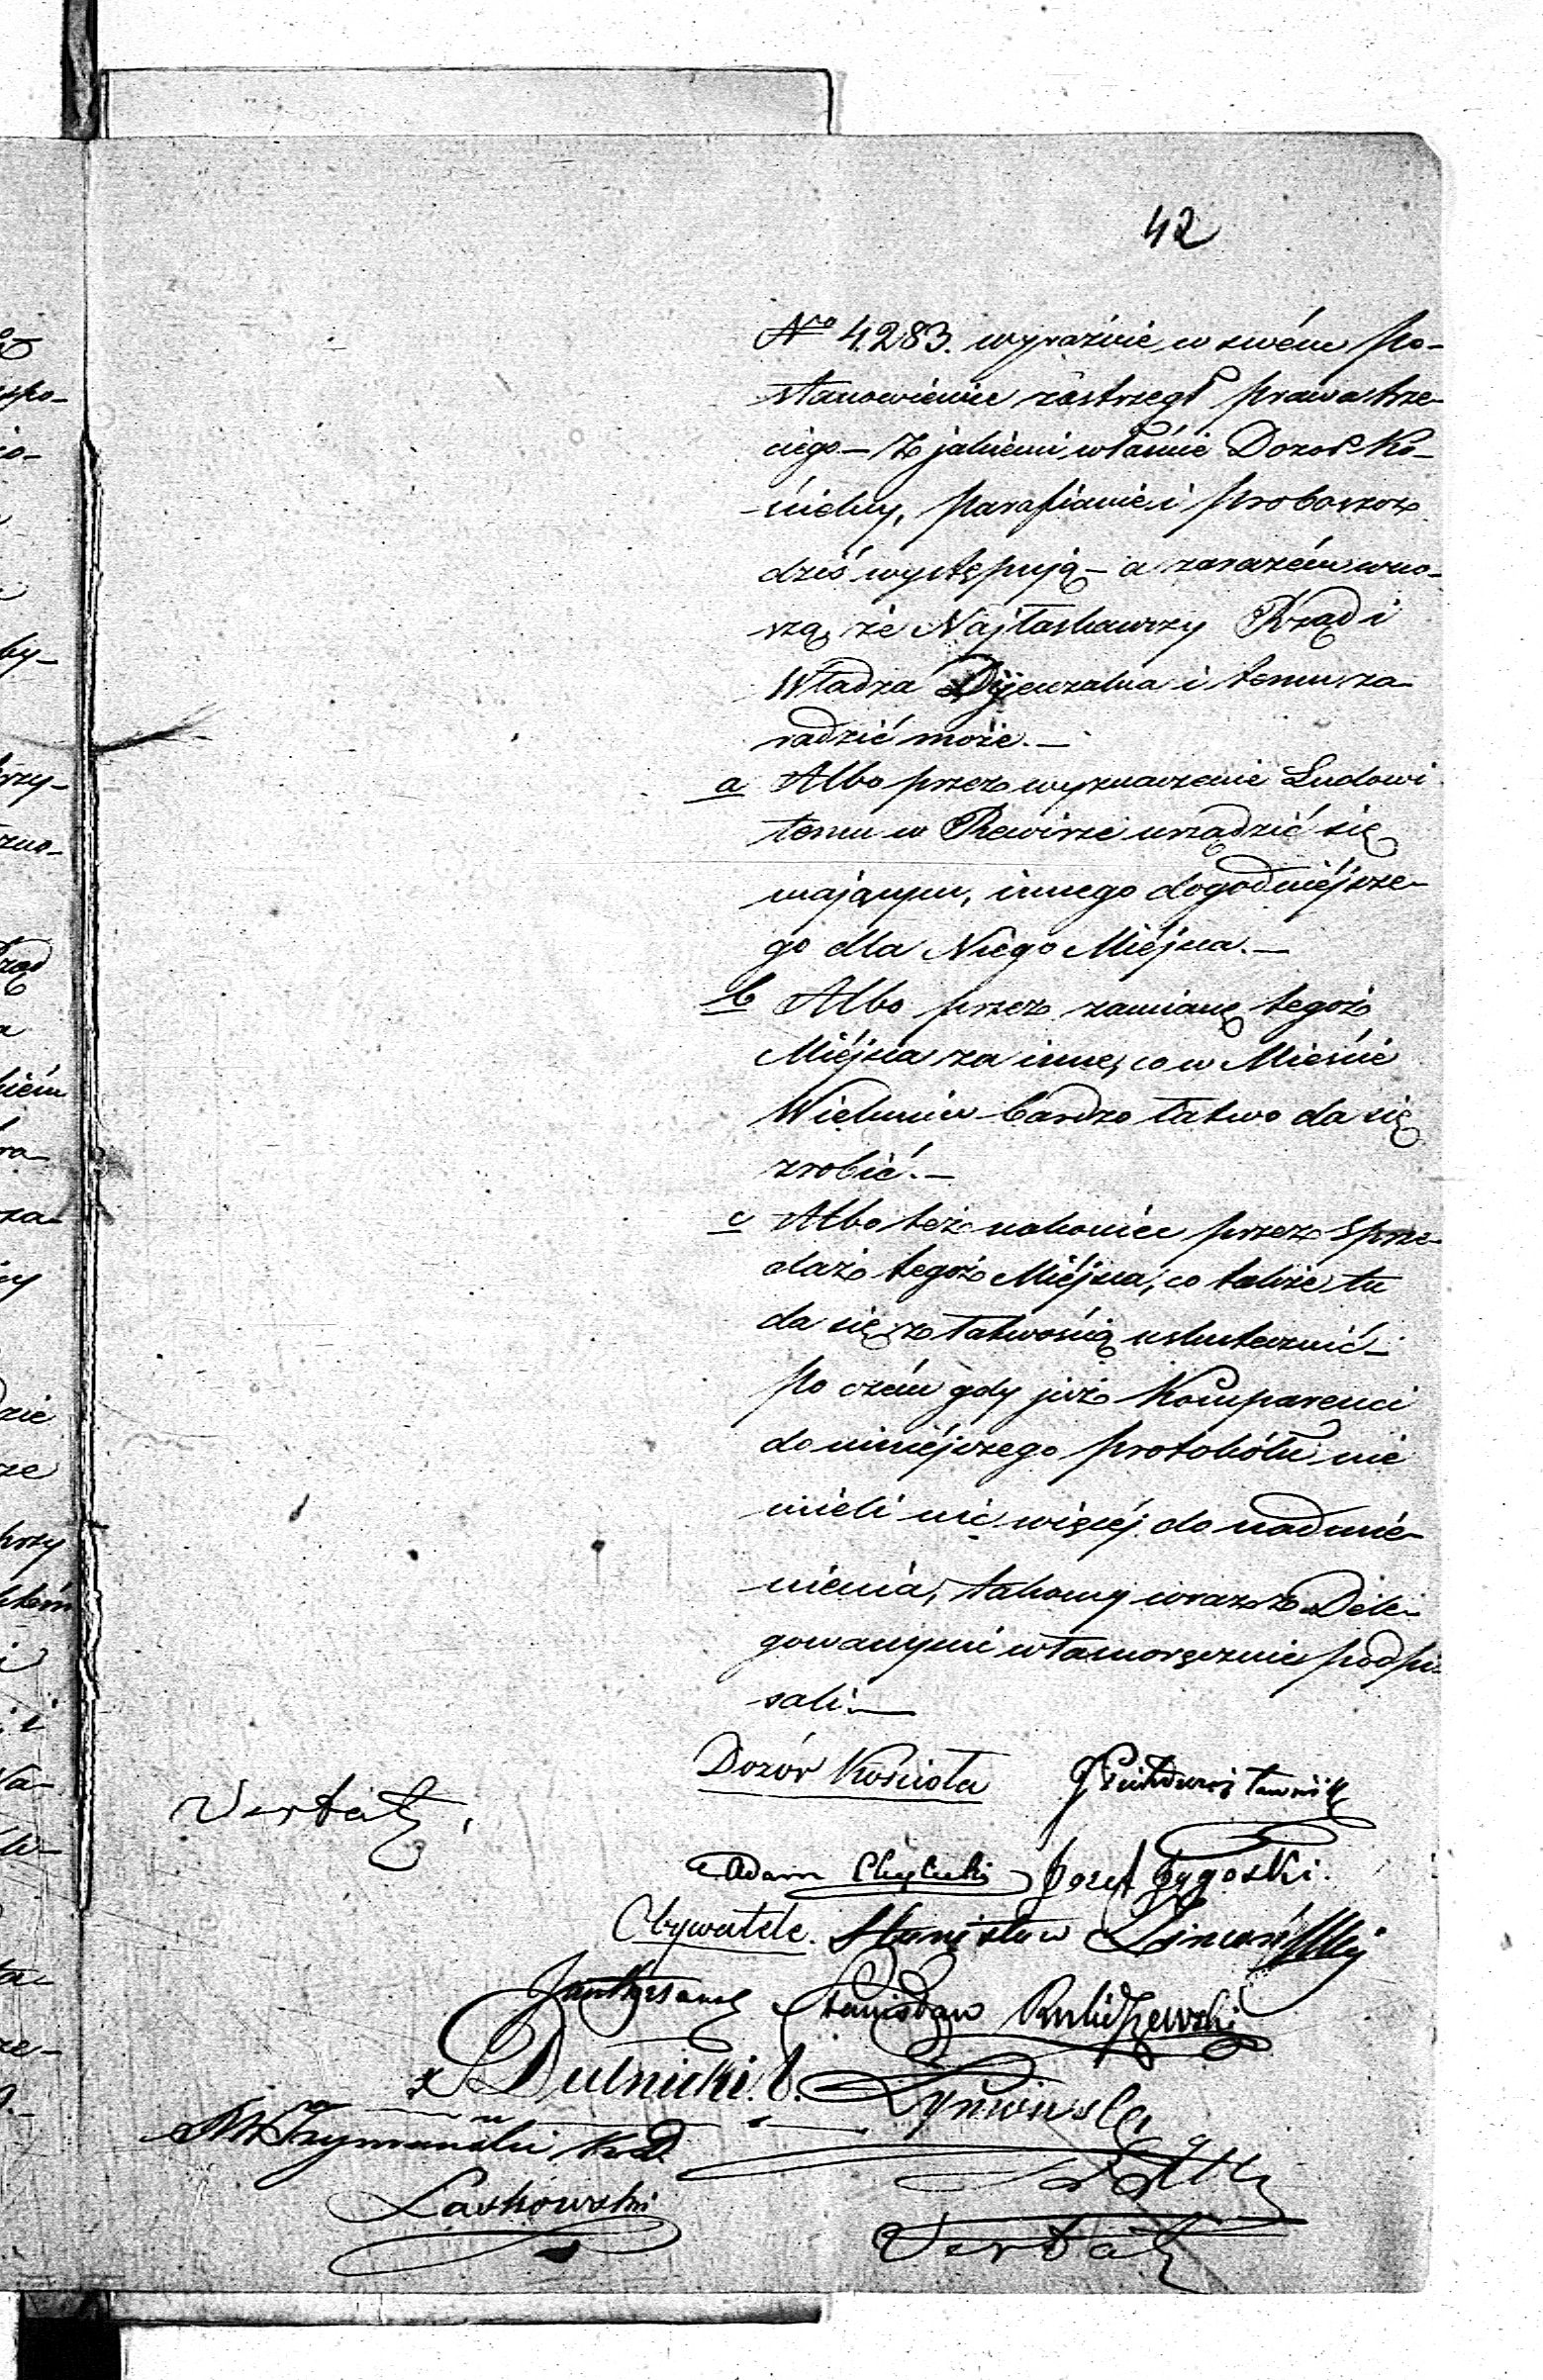 42
Nro 4283. wyraźnie w swém po-
stanowieniu zastrzegł prawa trze-
ciego – Z jakiemi właśnie Dozór Ko-
ścielny, Parafianie i Proboszcz
dziś występują – a zarazém wno-
szą, że Najłaskawszy Rząd i
Władza Dyjecezalna i temu za
radzić może. –
a Albo przez wyznaczenie Ludowi
temu w Rewirze urządzić się
mającym, innego dogodniejsze-
go dla Niego Miéjsca. –
b Albo przez zamianę tegoż
Miéjsca za inne, co w Mieście
Wieluniu bardzo łatwo da się
zrobić. –
c Albo też nakoniec przez Sprze-
daż tegoż Miéjsca, co także tu
da się z łatwością uskutecznić –
Po czém gdy już Komparenci
do niniéjszego protokółu nie
mieli nic więcéj do nadmie-
nienia, takowy wraz z Dele-
gowanymi własnoręcznie podpi
sali. –
Dozór Kościoła
Vertatz
Adam Józef
Obywatele. Stanisław
Stanisław
Dulnicki.
Szymański
Laskowski
Vertatz